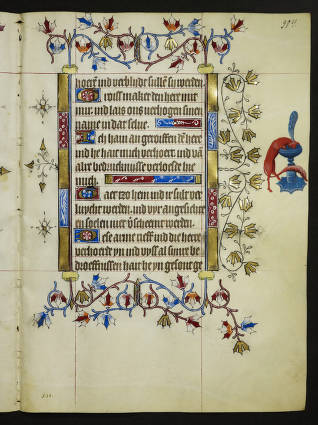 hoere ind verblijde sullen si werden
Groiss maket den here mit
mir ind lais ons verhogen sinen
name in dat selve
Ich hain angeroiffen de here
ind he hait mich verhoert ind va
alre bedrucknisse verloeste he
mich
Gaet zo hem ind ir sult ver
luycht werden ind uyr angesichte
en soelen niet verscheent werden
Dese arme rieff ind die here
verhoerde yn ind uyss al sinre be
droeffnissen hait he yn gesont ge